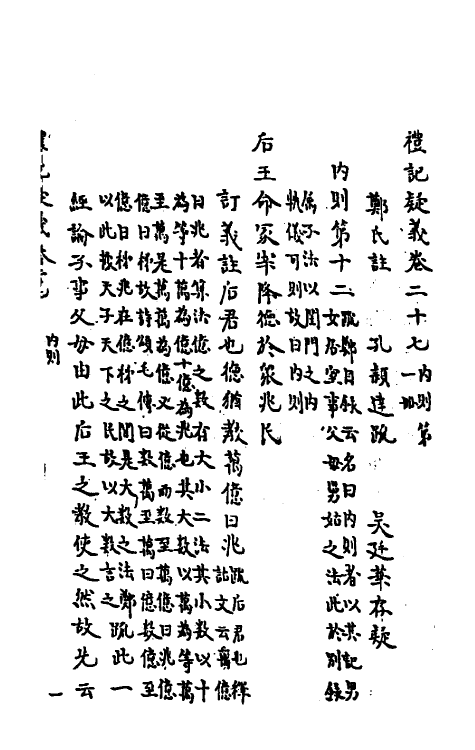 禮記疑義卷二十七 內則第一冊
鄭氏註 孔穎達疏 吳廷華存疑
內則第十二 疏鄭目錄云名曰內則者以其記男
女居室事父母舅姑之法此於別錄
屬子法以閨門之內
軌儀可則故曰內則
后王命冢宰降德於眾兆民
訂義註后君也德猶教萬億曰兆 疏后君也釋
詁文云萬億
曰兆者算法億之數有大小二法其小數以十
為等十萬為億十億為兆也其大數以萬為等萬
至萬是萬萬為億又從億而數至萬億曰兆億
億曰秭故詩頌毛傳曰數萬至萬曰億數億至
億曰秭兆在億秭之間是大數之法鄭
以此據天子天下之民故以大數言之 疏此一
經論子事父母由此后王之教使之然故先云
內則
一